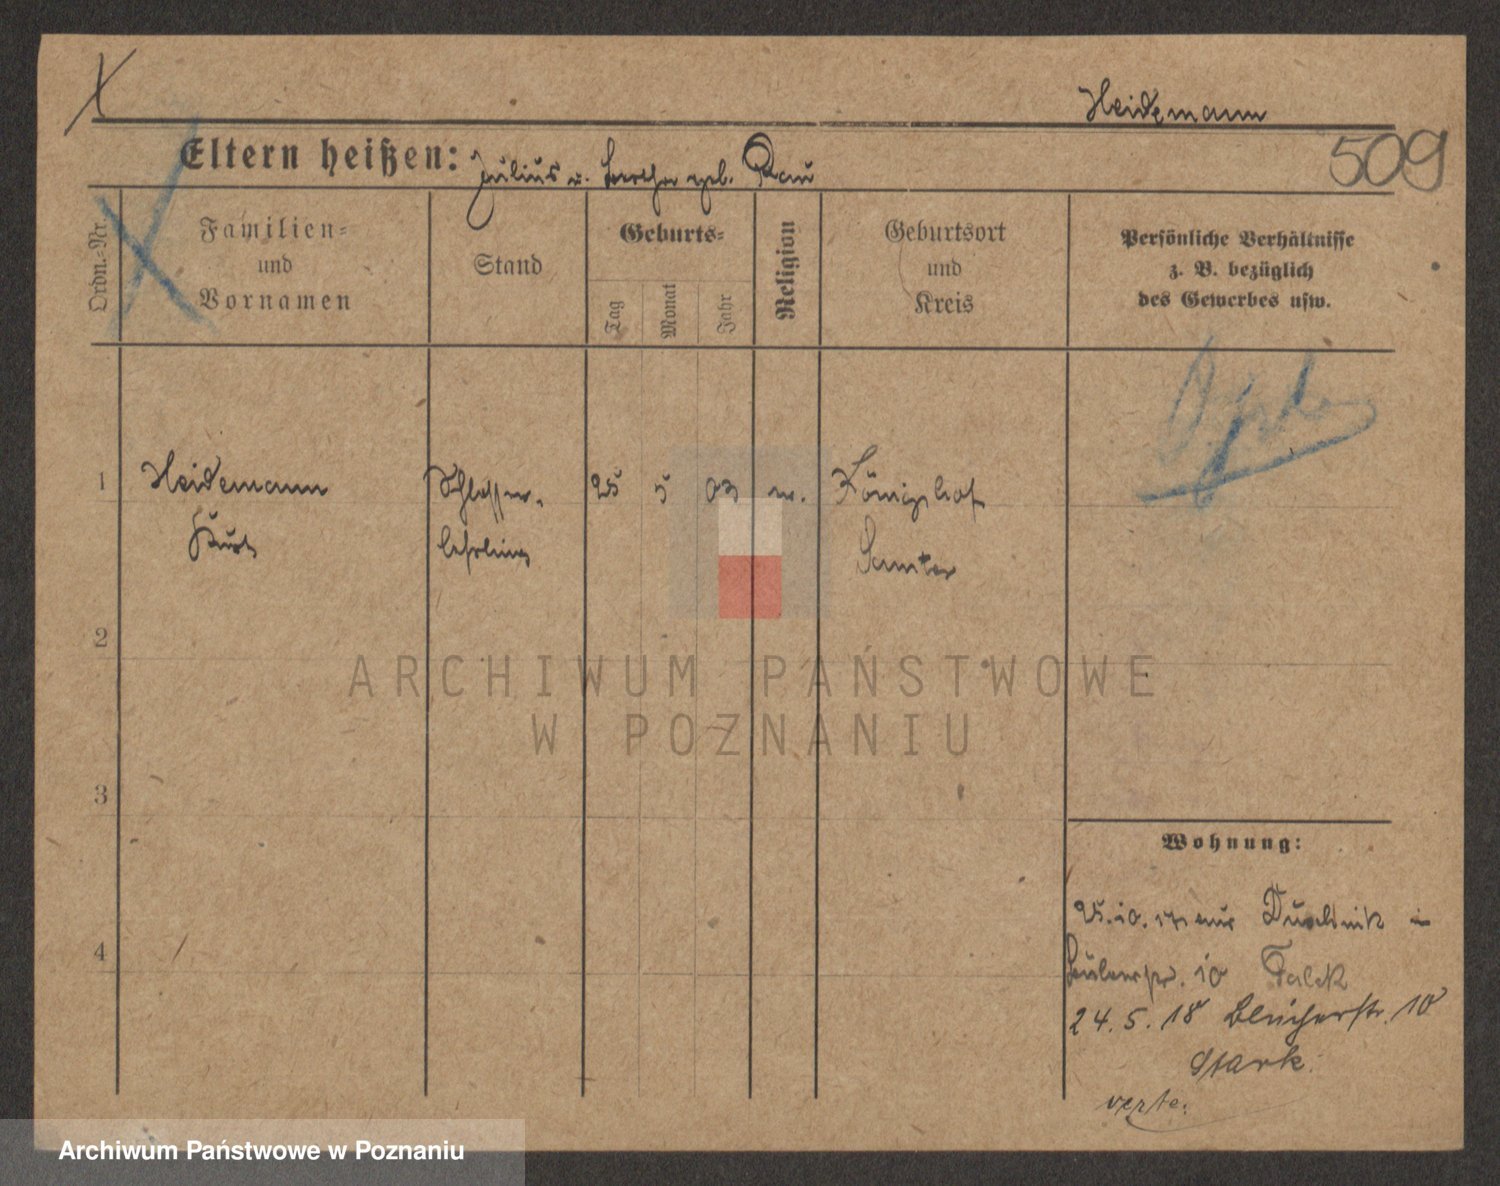 Heidemann
Eltern heißen: Julius u. Bertha geb. Rau
509
Ordn.-Nr.
Familien-
und
Vornamen
Stand
Geburts-
Tag
Monat
Jahr
Religion
Geburtsort
und
Kreis
Persönliche Verhältnisse
z. B. bezüglich
des Gewerbes usw.
1
Heidemann
Kurt
Schlosser-
lehrling
25
5
03
ev.
Königshof
Samter
2
3
4
Wohnung:
25.10.17 aus
10 Falck
24.5.18 Blücherstr. 10
Stark.
verte.
ARCHIWUM PAŃSTWOWE
W POZNANIU
Archiwum Państwowe w Poznaniu